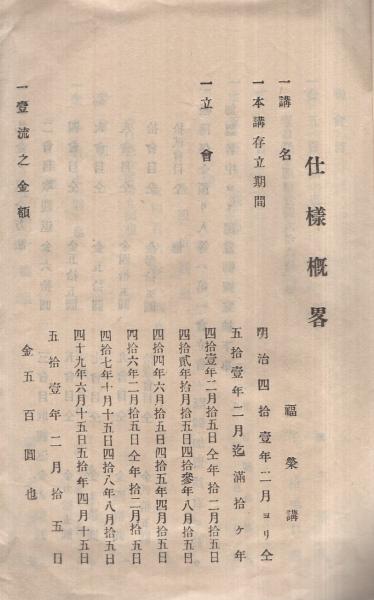 仕樣概畧
一講名 福榮講
一本講存立期間 明治四拾壹年二月ヨリ仝
五拾壹年二月迄滿拾ヶ年
一立會 四拾壹年二月拾五日仝年拾二月拾五日
四拾貳年拾月拾五日四拾參年八月拾五日
四拾四年六月拾五日四拾五年四月拾五日
四拾六年二月拾五日仝年拾二月拾五日
四拾七年十月十五日四拾八年八月拾五日
四十九年六月十五日五拾年四月十五日
五拾壹年二月拾五日
一壹流之金額 金五百圓也